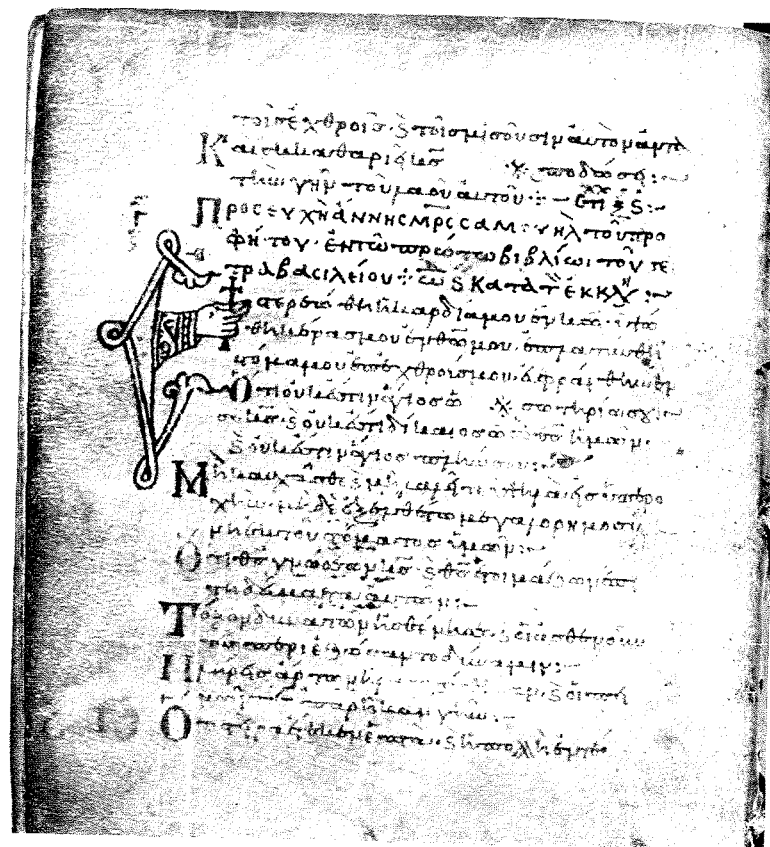 τοῖς ἐχθροῖς· ϗ τοῖς μισοῦσιν αὐτὸν ἀντα
Καὶ ἐκκαθαριεῖ κς ποδώσει:~
τὴν γῆν τοῦ λαοῦ αὐτοῦ :~
Προσευχὴ ἄννης μρς σαμουὴλ τοῦ προ
φήτου· ἐν τῶ πρώτω βιβλίωι τοῦ τε
τραβασιλείου: κατὰ τ ἐκκλ :~
Ἐστερεώθη ἡ καρδία μου ἐν κω· ὑψώ
θη κέρας μου ἐν θω μου· ἐπλατύνθη
στόμα μου ἐπ ἐχθρούς μου· εὐφράνθην ἐν
Ὅτι οὐκ ἔστιν ἅγιος ὡς σωτηρία σου:~
ὁ κς· ϗ οὐκ ἔστι δίκαιος ὡς ὁ θς ἡμῶν·
ϗ οὐκ ἔστιν ἅγιος πλήν σου:~
Μὴ καυχᾶσθε ϗ μὴ λαλεῖτε ὑψηλὰ εἰς ὑπερο
χήν· μηδὲ ἐξελθέτω μεγαλορημοσύ
νη ἐκ τοῦ στόματος ὑμῶν:~
Ὅτι θς γνώσεων κς· ϗ θς ἑτοιμάζων ἐπι
τηδεύματα αὐτῶν:~
Τόξον δυνατῶν ἠσθένησε· ϗ οἱ ἀσθενοῦν
τες περιεζώσαντο δύναμιν:~
Πλήρεις ἄρτων ϗ οἱ πει
παρῆκαν γῆν:~
Ὅτι στεῖρα ἔτεκεν ἑπτά· ϗ ἡ πολλὴ ἐν τέ